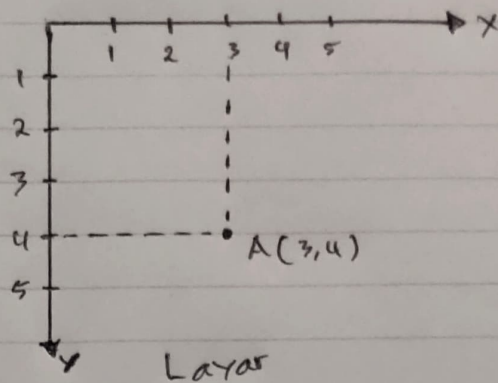 X
1 2 3 4 5
1
2
3
4
A(3,4)
5
Y
Layar